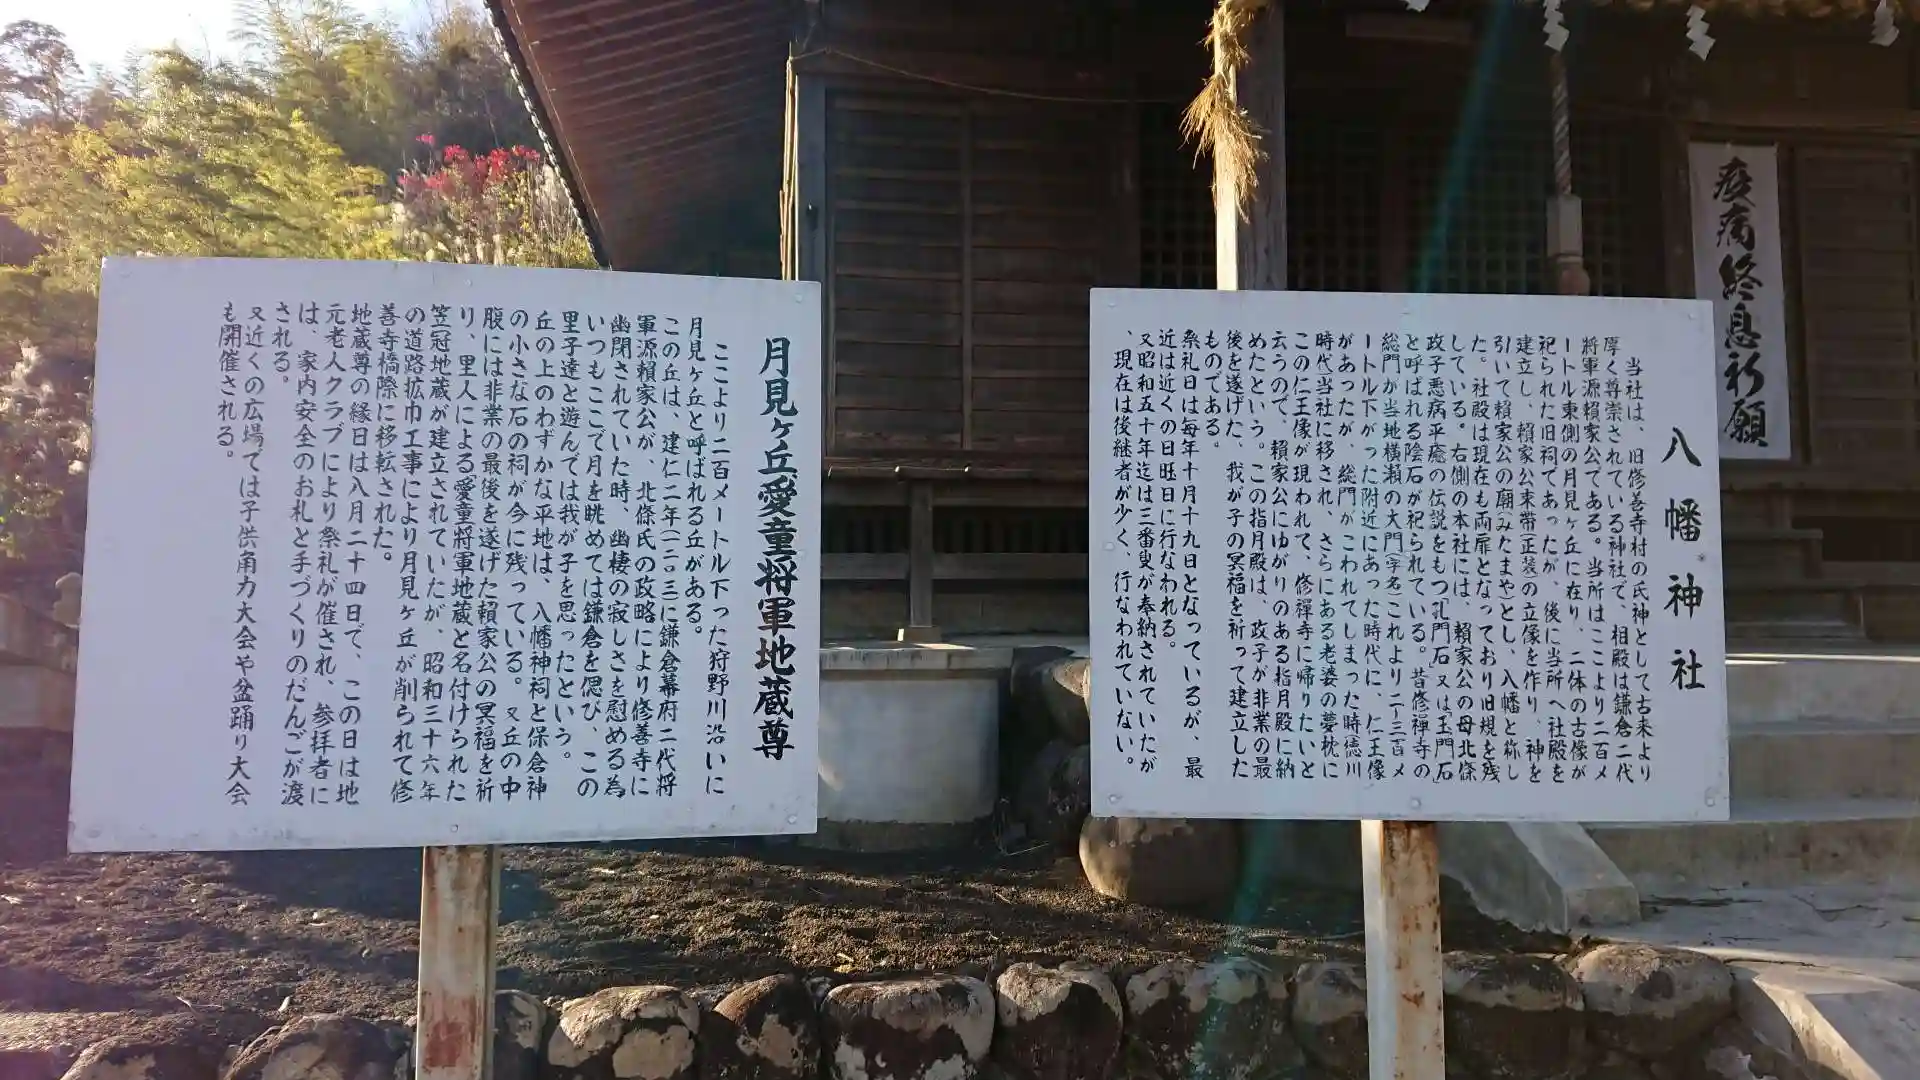 疫病終息祈願
八幡神社
当社は、旧修善寺村の氏神として古来より
厚く尊崇されている神社で、相殿は鎌倉二代
将軍源頼家公である。当所はここより二百メ
ートル東側の月見ヶ丘に在り、二体の古像が
祀られた旧祠であったが、後に当所へ社殿を
建立し、頼家公束帯(正装)の立像を作り、神を
引いて頼家公の廟(みたまや)とし、八幡と称し
た。社殿は現在も両扉となっており旧規を残
している。右側の本社には、頼家公の母北條
政子悪病平癒の伝説をもつ「孔門石又は玉門石」
と呼ばれる陰石が祀られている。昔修禅寺の
総門が当地横瀬の大門(字名)これより二~三百メ
ートル下がった附近にあった時代に、仁王像
があったが、総門がこわれてしまった時(徳川
時代)当社に移され、さらにある老婆の夢枕に
この仁王像が現われて、修禅寺に帰りたいと
云うので、頼家公にゆかりのある指月殿に納
めたという。この指月殿は、政子が非業の最
後を遂げた、我が子の冥福を祈って建立した
ものである。
祭礼日は毎年十月十九日となっているが、最
近は近くの日旺日に行なわれる。
又昭和五十年迄は三番叟が奉納されていたが
、現在は後継者が少く、行なわれていない。
月見ヶ丘愛童将軍地蔵尊
ここより二百メートル下った狩野川沿いに
月見ヶ丘と呼ばれる丘がある。
この丘は、建仁二年(一二〇三)に鎌倉幕府二代将
軍源頼家公が、北條氏の政略により修善寺に
幽閉されていた時、幽棲の寂しさを慰める為
いつもここで月を眺めては鎌倉を偲び、この
里子達と遊んでは我が子を思ったという。
丘の上のわずかな平地は、八幡神祠と保倉神
の小さな石の祠が今に残っている。又丘の中
腹には非業の最後を遂げた頼家公の冥福を祈
り、里人による愛童将軍地蔵と名付けられた
笠冠地蔵が建立されていたが、昭和三十六年
の道路拡巾工事により月見ヶ丘が削られて修
善寺橋際に移転された。
地蔵尊の縁日は八月二十四日で、この日は地
元老人クラブにより祭礼が催され、参拝者に
は、家内安全のお札と手づくりのだんごが渡
される。
又近くの広場では子供角力大会や盆踊り大会
も開催される。